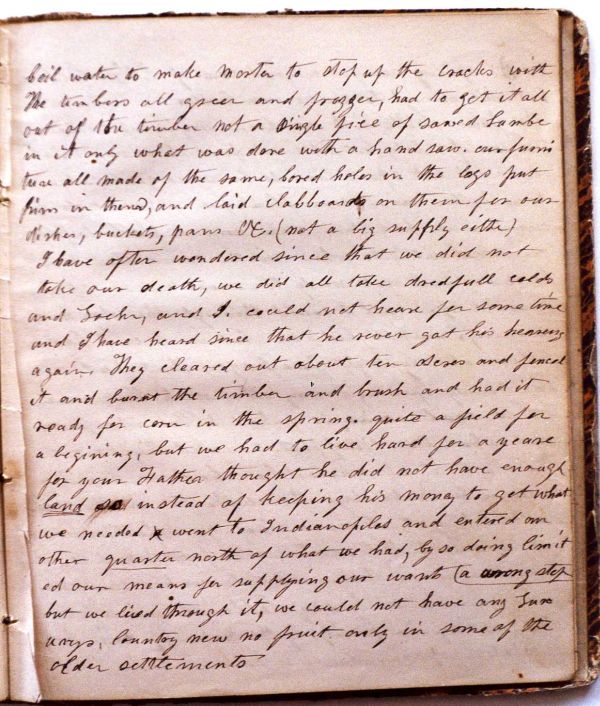 boil water to make morter to stop up the cracks with
The timbers all green and frozzen, had to get it all
out of the timber not a single piece of sawed Lumbe
in it only what was done with a hand saw. our furni
ture all made of the same, bored holes in the logs put
pins in them, and laid clabboards on them for our
dishes, buckets, pans &C. (not a big supply eithe)
I have often wondered since that we did not
take our death, we did all take dredfull colds
and and I. could not heare for some time
and I have heard since that he never got his hearing
again. They cleared out about ten acres and fenced
it and burnt the timber and brush and had it
ready for corn in the spring. quite a field for
a begining, but we had to live hard for a yeare
for your Father thought he did not have enough
land so instead of keeping his money to get what
we needed went to Indianopiles and entered an
other quarter north of what we had, by so doing limit
ed our means for supplying our wants (a wrong step
but we lived through it, we could not have any Lux
urys, Country new no fruit only in some of the
older settlements